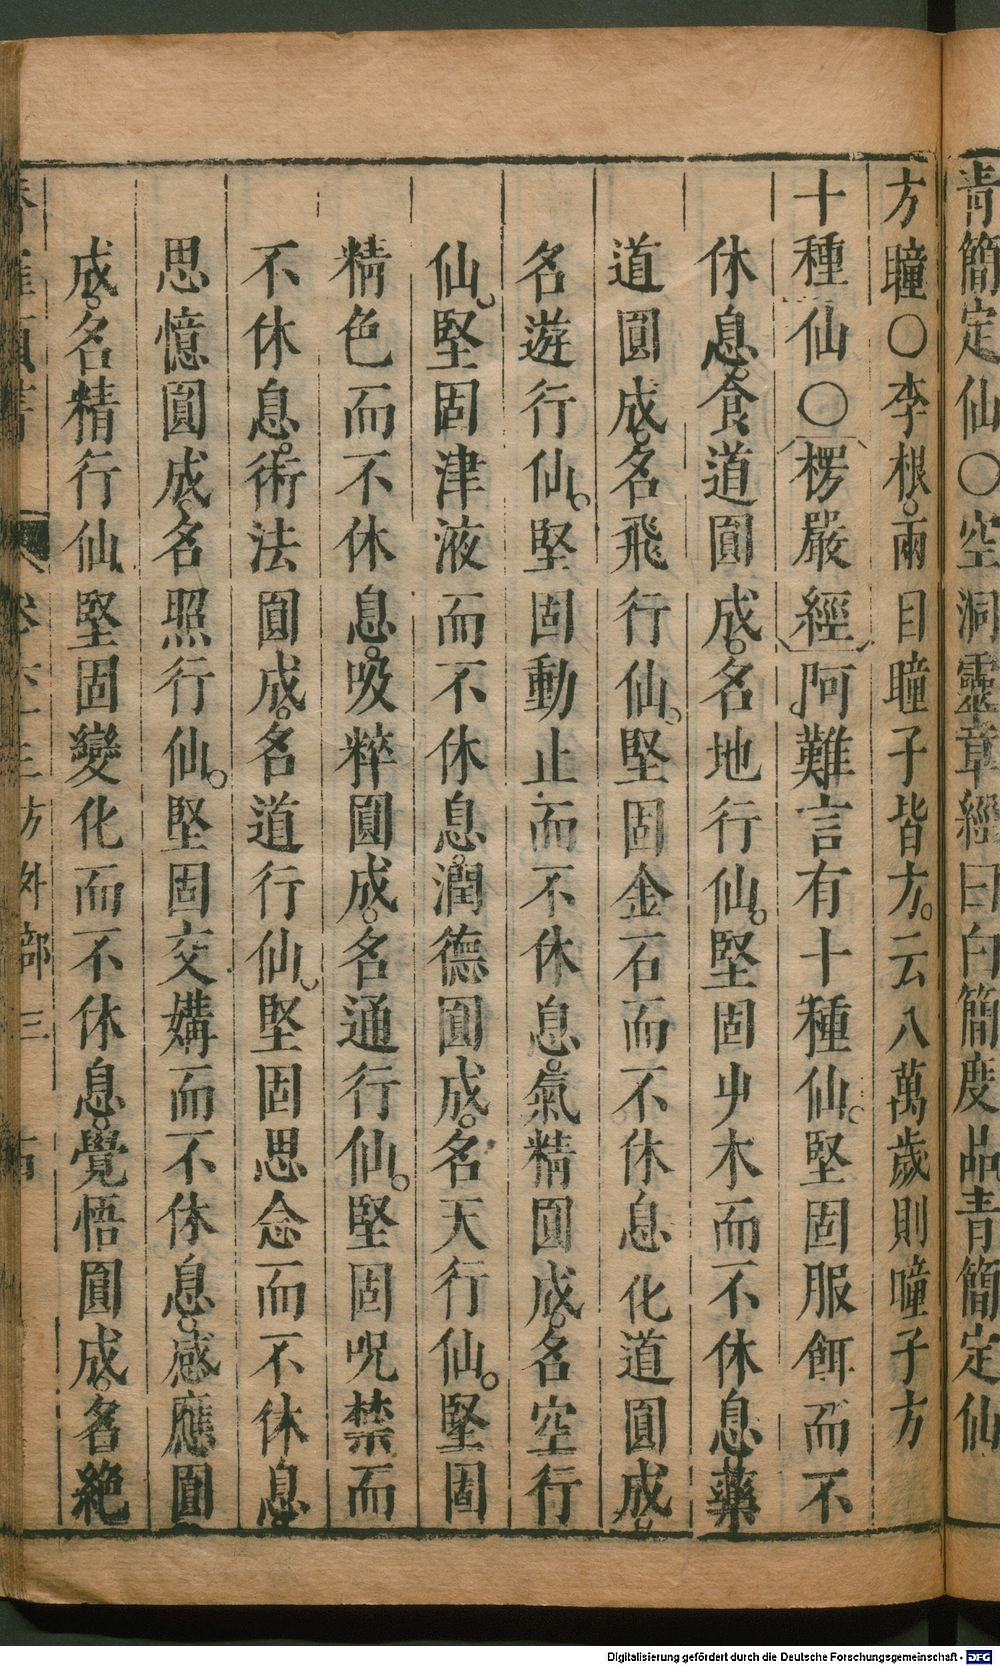 青簡定仙○空洞靈章經曰白簡度品青簡定仙
方瞳○李根兩目瞳子皆方云八萬歲則瞳子方
十種仙○楞嚴經阿難言有十種仙堅固服餌而不
休息食道圓成名地行仙堅固艸木而不休息藥
道圓成名飛行仙堅固金石而不休息化道圓成
名遊行仙堅固動止而不休息氣精圓成名空行
仙堅固津液而不休息潤德圓成名天行仙堅固
精色而不休息吸粹圓成名通行仙堅固呪禁而
不休息術法圓成名道行仙堅固思念而不休息
思憶圓成名照行仙堅固交媾而不休息感應圓
成名精行仙堅固變化而不休息覺悟圓成名絶
卷 方外部三
Digitalisierung gefördert durch die Deutsche Forschungsgemeinschaft - DFG